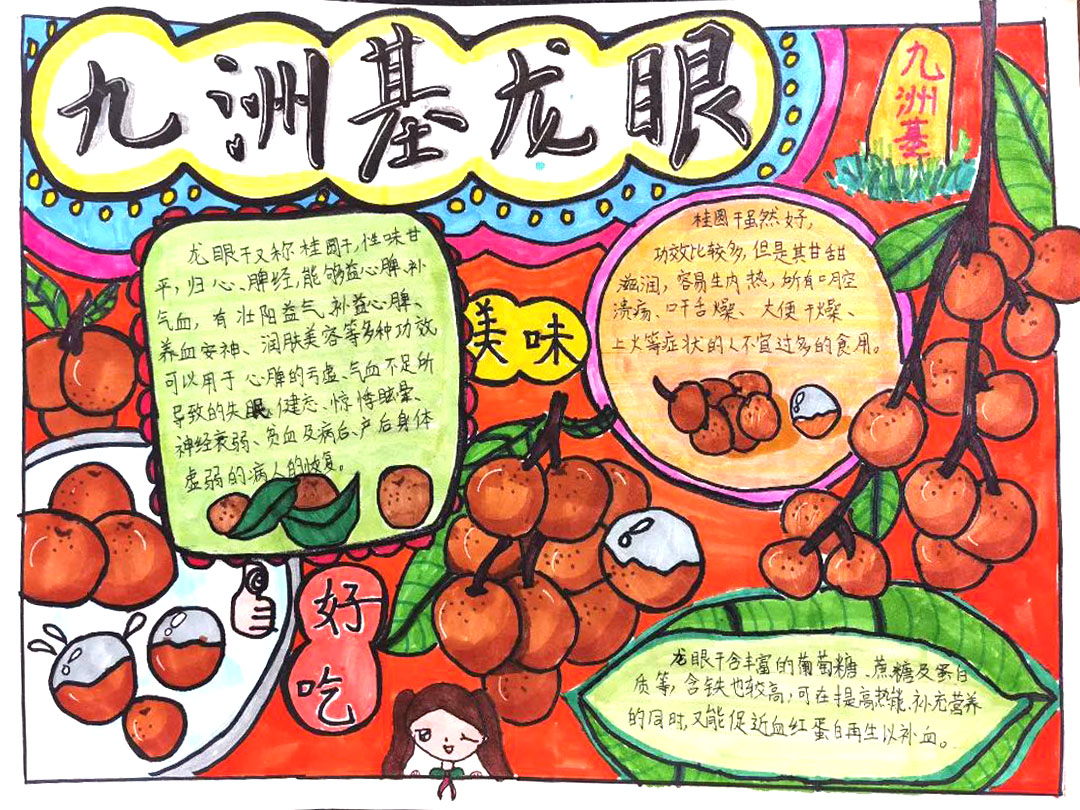 九洲基龙眼
九洲基
龙眼干又称桂圆干,性味甘
平,归心、脾经,能够益心脾、补
气血,有壮阳益气、补益心脾、
养血安神、润肤美容等多种功效
可以用于心脾的亏虚、气血不足所
导致的失眠、健忘、惊悸眩晕、
神经衰弱、贫血及病后、产后身体
虚弱的病人的恢复。
美味
桂圆干虽然好,
功效比较多,但是其甘甜
滋润,容易生内热,所有口腔
溃疡、口干舌燥、大便干燥、
上火等症状的人不宜过多的食用。
好
吃
龙眼干含丰富的葡萄糖、蔗糖及蛋白
质等,含铁也较高,可在提高热能、补充营养
的同时,又能促近血红蛋白再生以补血。